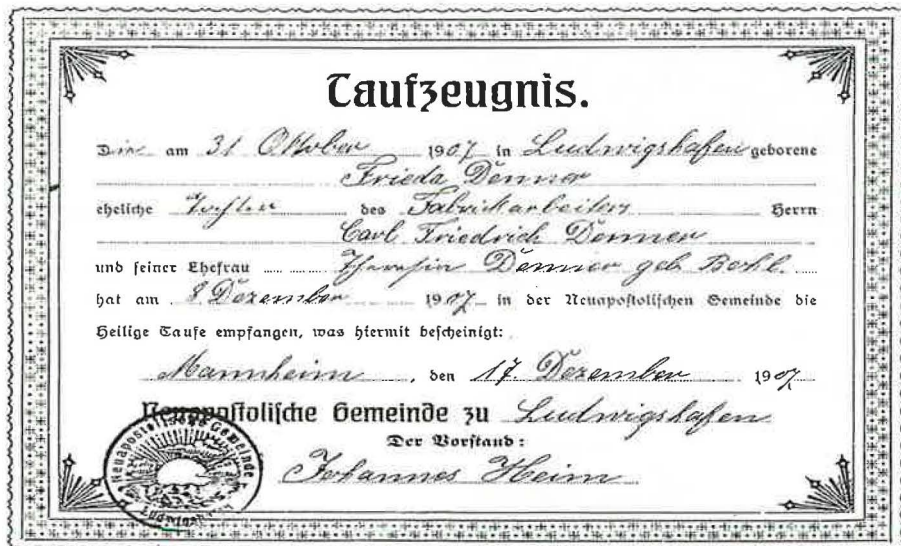 Taufzeugnis.
Die am 31 Oktober 1907 in Ludwigshafen geborene
Frieda Denner
eheliche Tochter des Fabrickarbeiters Herrn
Carl Friedrich Denner
und seiner Ehefrau Theresia Denner geb Bohl.
hat am 8 Dezember 1907 in der Neuapostolischen Gemeinde die
Heilige Taufe empfangen, was hiermit bescheinigt:
Mannheim, den 17. Dezember 1907
Neuapostolische Gemeinde zu Ludwigshafen
Der Vorstand:
Johannes Heim
Neuapostolische Gemeinde
Ludwigshafen